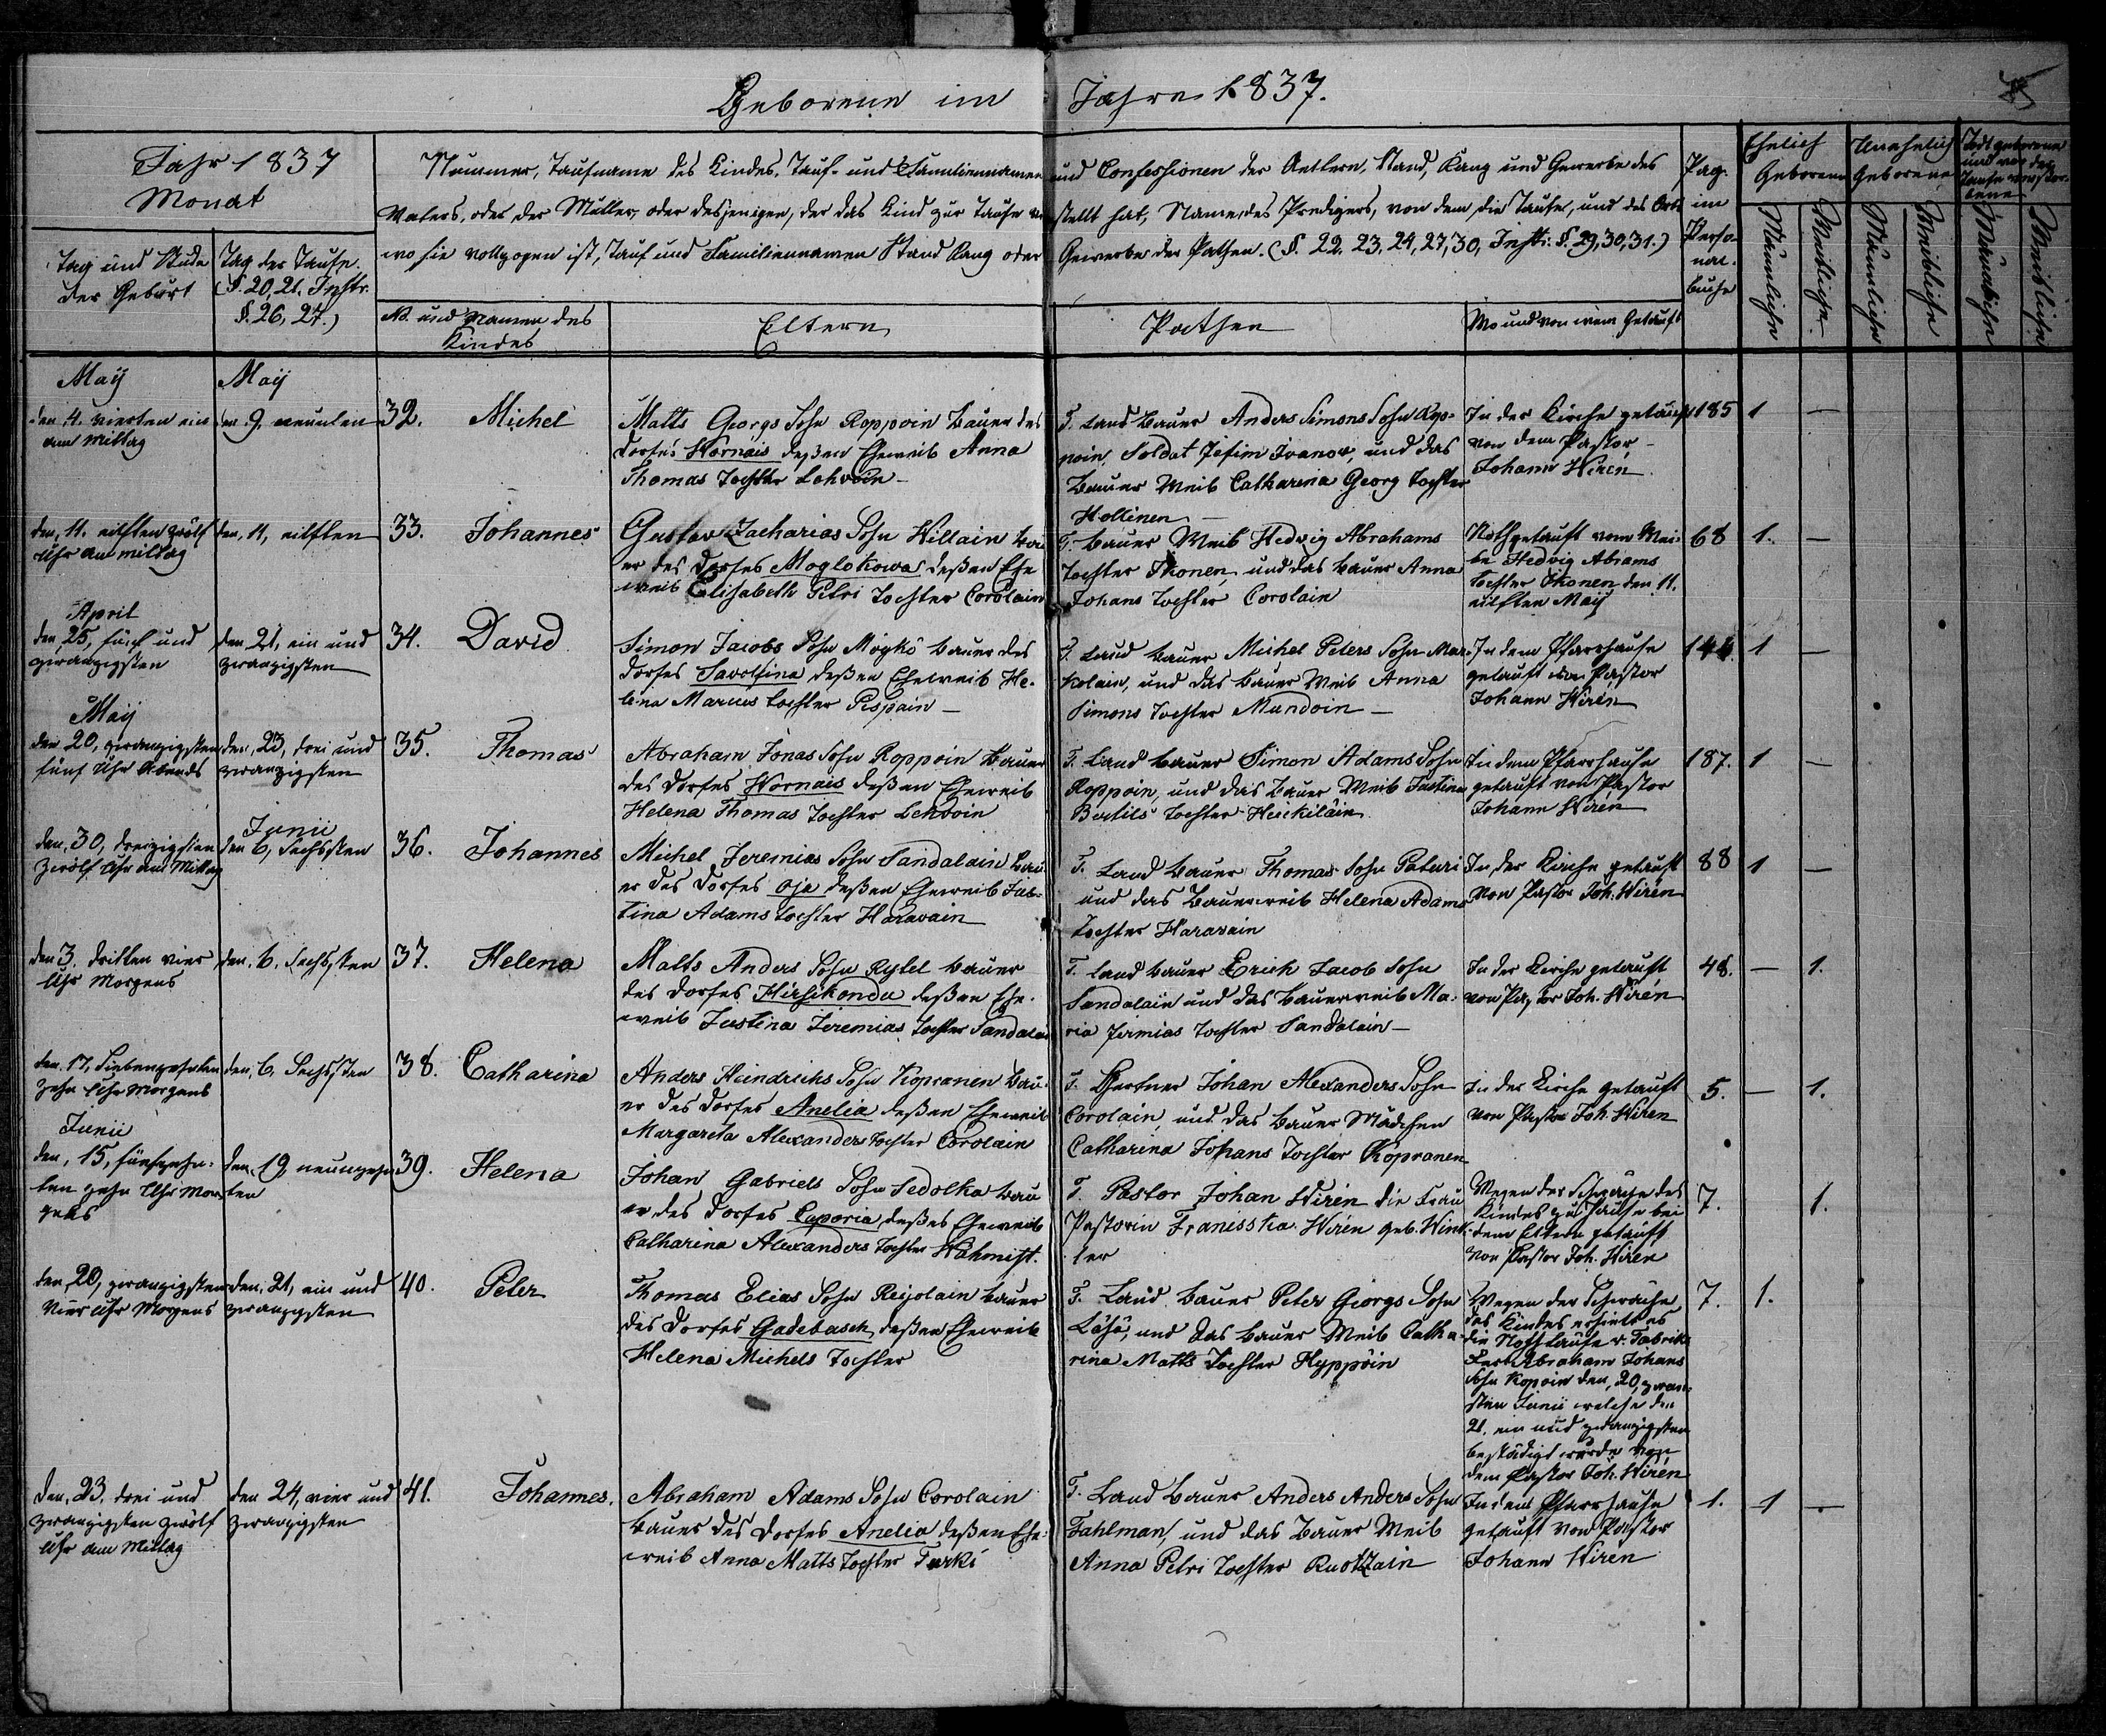 Geborene im Jahre 1837.
Jahr 1837
Monat
Tag und Stunde
der Geburt
Tag der Taufe.
(§. 20, 21. Instr.
§. 26, 27.)
Nummer, Taufname des Kindes, Tauf- und Familiennamen und Confessionen der Aeltern, Stand, Rang und Gewerbe des
Vaters, oder der Mutter, oder desjenigen, der das Kind zur Taufe stellt hat, Name des Predigers, von dem die Taufe, und des Orts
wo sie vollzogen ist, Tauf und Familiennamen Stand Rang oder Gewerbe der Pathen. (§. 22, 23, 24, 27, 30, Instr. §. 29, 30, 31.)
No. und Namen des
Kindes
Eltern
Pathen
Wo und von wem Getauft
Pag.
im
Perso-
nal-
buche
Ehelich
Geborene
Unehelich
Geborene
Todt geborene
und vor der
Taufe verstor-
bene
Männliche
Weibliche
Männliche
Weibliche
Männliche
Weibliche
May
den 4. vierten ein
am Mittag
May
den 9. neunten
32. Michel
Matts Georgs Sohn Roppoin Bauer des
Dorfes Wornais deßen Eheweib Anna
Thomas Tochter Lohvoin
T. Land Bauer Anders Simons Sohn Rop-
poin, Soldat Jefim Ivanow, und das
Bauer Weib Catharina Georg Tochter
Hollinen
In der Kirche getauft
von dem Pastor
Johann Wirén
185 1 —
den 11. eilften zwölf
Uhr am Mittag
den, 11, eilften
33. Johannes
Gustav Zacharias Sohn Willain Bau-
er des Dorfes Moglokowa deßen Ehe
weib Elisabeth Petri Tochter Corolain
T. Bauer Weib Hedvig Abrahams
Tochter Ikonen und das Bauer Anna
Johans Tochter Corolain
Nothgetauft vom Wei-
be Hedvig Abrams
Tochter Ikonen den 11.
eilften Maij
68 1. —
April
den, 25, fünf und
zwanzigsten
den 21, ein und
zwanzigsten
34. David
Simon Jacobs Sohn Moykö Bauer des
Dorfes Savolsina, deßen Eheweib He-
lena Marcus Tochter Pespain
T. Land Bauer Michel Peters Sohn Mar-
kolain, und das Bauer Weib Anna
Simons Tochter Mundoin
In dem Pfarrhause
getauft von Pastor
Johann Wirén
144. 1 —
Maij
den 20, zwanzigsten
fünf Uhr Abends
den, 23, drei und
zwanzigsten
35. Thomas
Abraham Jonas Sohn Roppoin Bauer
des Dorfes Wornais deßen Eheweib
Helena Thomas Tochter Lehvoin
T. Land Bauer Simon Adams Sohn
Roppoin, und das Bauer Weib Justina
Bertils Tochter Heickiläin
In dem Pfarrhause
getauft von Pastor
Johann Wirén
187. 1 —
den, 30, dreizigsten
zwölf Uhr am Mittag
Junii
den 6, Sechsten
36. Johannes
Michel Jeremias Sohn Sandalain Bau-
er des Dorfes Oja deßen Eheweib Jus-
tina Adams Tochter Haravain
T. Land Bauer Thomas Sohn Paturi
und das Bauerweib Helena Adams
Tochter Haravain
In der Kirche getauft
von Pastor Joh. Wirén
88 1 —
den 3. dritten vier
Uhr Morgens
den. 6. Sechsten
37. Helena
Matts Anders Sohn Rytel Bauer
des Dorfes Hirsikondu deßen Ehe-
weib Justina Jeremias Tochter Sandalain
T. Land Bauer Erich Jacob Sohn
Sandalain und das Bauerweib Ma-
ria Jermias Tochter Sandalain
In der Kirche getauft
von Pastor Joh. Wirén
48. — 1.
den. 17, Siebenzehnten
zehn Uhr Morgens
den, 6, Sechsten
38. Catharina
Anders Heindrichs Sohn Kopranen Bau-
er des Dorfes Anelia deßen Eheweib
Margareta Alexanders Tochter Corolain
T. Gärtner Johan Alexanders Sohn
Corolain, und das Bauer Mädchen
Catharina Johans Tochter Kopranen
In der Kirche getauft
von Pastor Joh. Wiren
5. — 1.
Junii
den, 15, fünfzehn-
ten zehn Uhr Mor-
gens
den. 19 neunzehn-
ten
39. Helena
Johan Gabriels Sohn Sedolka Bau
er des Dorfes Caporia, deßes Eheweib
Catharina Alexanders Tochter
T. Pastor Johan Wirén die Frau
Pastorin Franisska Wirén geb. Wink-
ler
Wegen der Schwäche des
Kindes zu Hause bei
dem Eltern getauft
von Pastor Joh. Wirén
7. 1.
den, 20, zwanzigsten
vier Uhr Morgens
den, 21, ein und
zwanzigsten
40. Peter
Thomas Elias Sohn Reijolain Bauer
des Dorfes Gadebasch, deßen Eheweib
Helena Michels Tochter
T. Land Bauer Peter Georgs Sohn
und das Bauer Weib Catha-
rina Matts Tochter Hyppöin
Wegen der Schwäche
des Kindes erhielt es
die Nothtaufe v. Fabrik
Abraham Johans
Sohn Kopoin den, 20,
sten Junii welche den
21, ein und zwanzigsten
bestädigt wurde von
dem Pastor Joh. Wirén
7. 1.
den, 23, drei und
zwanzigsten zwölf
Uhr am Mittag
den 24, vier und
zwanzigsten
41. Johannes.
Abraham Adams Sohn Corolain
Bauer des Dorfes Anelia deßen Ehe-
weib Anna Matts Tochter Turki
T. Land Bauer Anders Anders Sohn
Fahlman, und das Bauer Weib
Anna Petri Tochter Ruotzain
In dem Pfarrhause
getauft von Pastor
Johann Wirén
1. 1 —